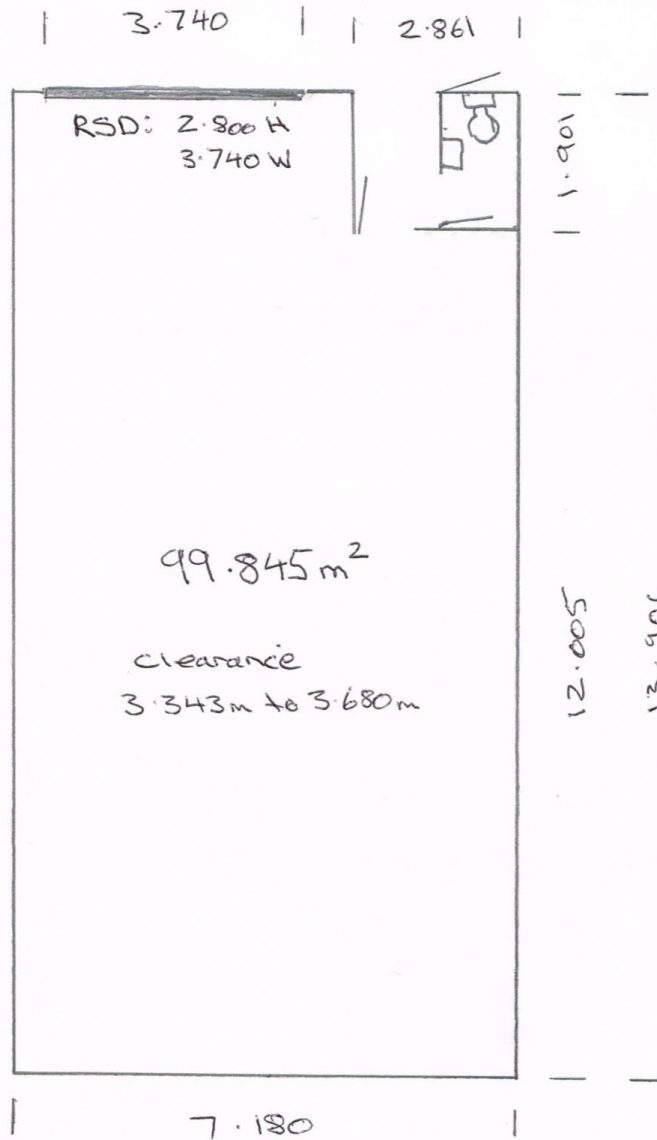 3.740
2.861
RSD: 2.800 H
3.740 W
1.901
99.845 m²
clearance
3.343m to 3.680m
12.005
7.180